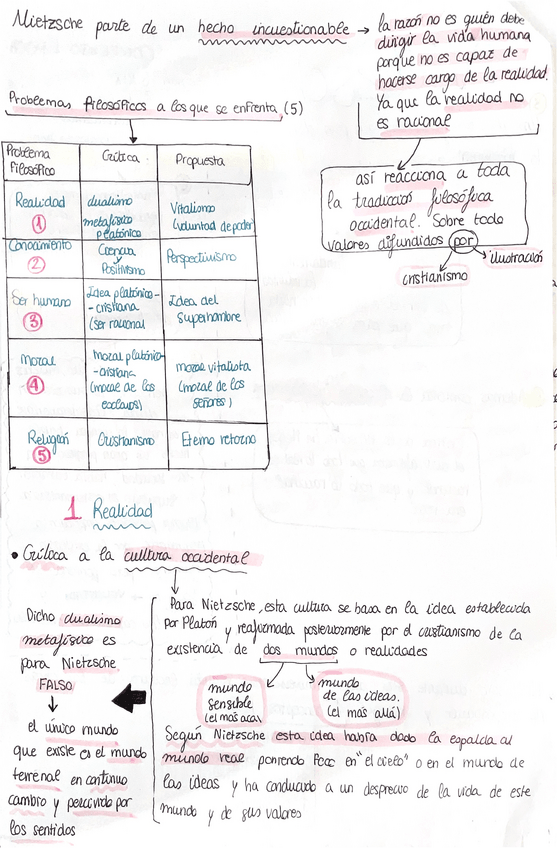 Nietzsche parte de un hecho incuestionable →
la razón no es quién debe
dirigir la vida humana
porque no es capaz de
hacerse cargo de la realidad.
Ya que la realidad no
es racional
así reacciona a toda
la tradición filosófica
occidental. Sobre todo
valores difundidos por
ilustración
cristianismo
Problemas filosóficos a los que se enfrenta, (5)
Problema Crítica Propuesta
Filosófico
Realidad dualismo Vitalismo
1 metafísico (voluntad de poder)
platónico
Conocimiento Ciencia Perspectivismo
2 Positivismo
Ser humano Idea platónico- Idea del
3 -cristiana superhombre
(ser racional
Moral Moral platónico- moral vitalista
4 -cristiana (moral de los
(moral de los señores)
esclavos)
Religión Cristianismo Eterno retorno
5
1 Realidad
• Crítica a la cultura occidental
Para Nietzsche, esta cultura se basa en la idea establecida
por Platón y reafirmada posteriormente por el cristianismo de la
existencia de dos mundos o realidades
mundo
sensible
(el más acá)
mundo
de las ideas.
(el más allá)
Según Nietzsche esta idea habría dado la espalda al
mundo real poniendo foco en "el cielo" o en el mundo de
las ideas y ha conducido a un desprecio de la vida de este
mundo y de sus valores
Dicho dualismo
metafísico es
para Nietzsche
FALSO
el único mundo
que existe es el mundo
terrenal en continuo
cambio y percibido por
los sentidos